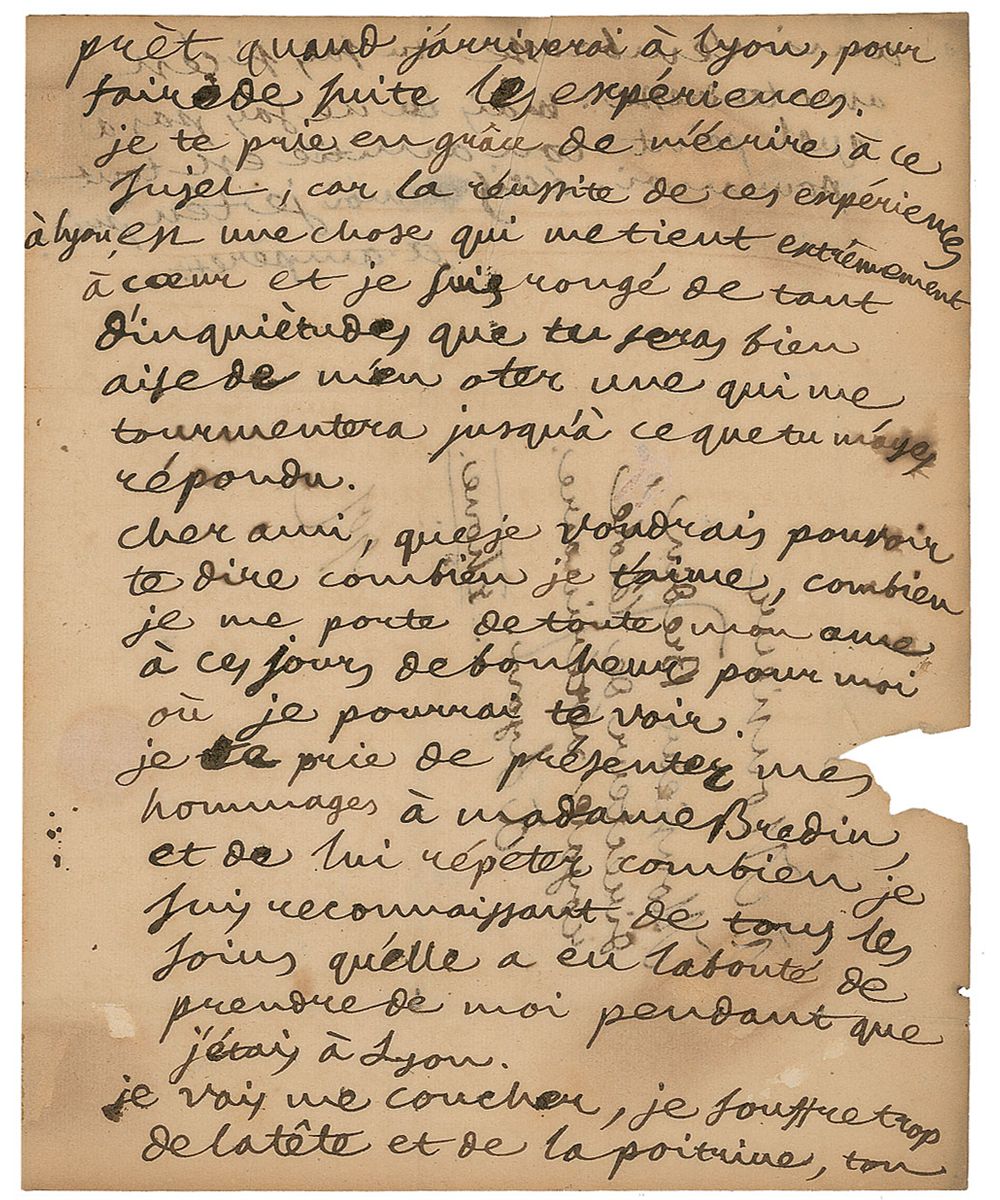 prèt quand j'arriverai à Lyon, pour
faire de suite les expériences.
je te prie en grâce de m'écrire à ce
sujet, car la réussite de ces expériences
à Lyon, est une chose qui me tient extrêmement
à cœur et je suis rongé de tant
d'inquiètudes que tu seras bien
aise de m'en oter une qui me
tourmentera jusqu'à ce que tu m'ayes
répondu.
cher ami, que je voudrais pouvoir
te dire combien je t'aime, combien
je me porte de toute mon ame
à ces jours de bonheur pour moi
où je pourrai te voir.
je te prie de présenter mes
hommages à madame Bredin,
et de lui répéter combien je
suis reconnaissant de tous les
soins qu'elle a eu la bonté de
prendre de moi pendant que
j'étais à Lyon.
je vais me coucher, je souffre trop
de la tête et de la poitrine, ton